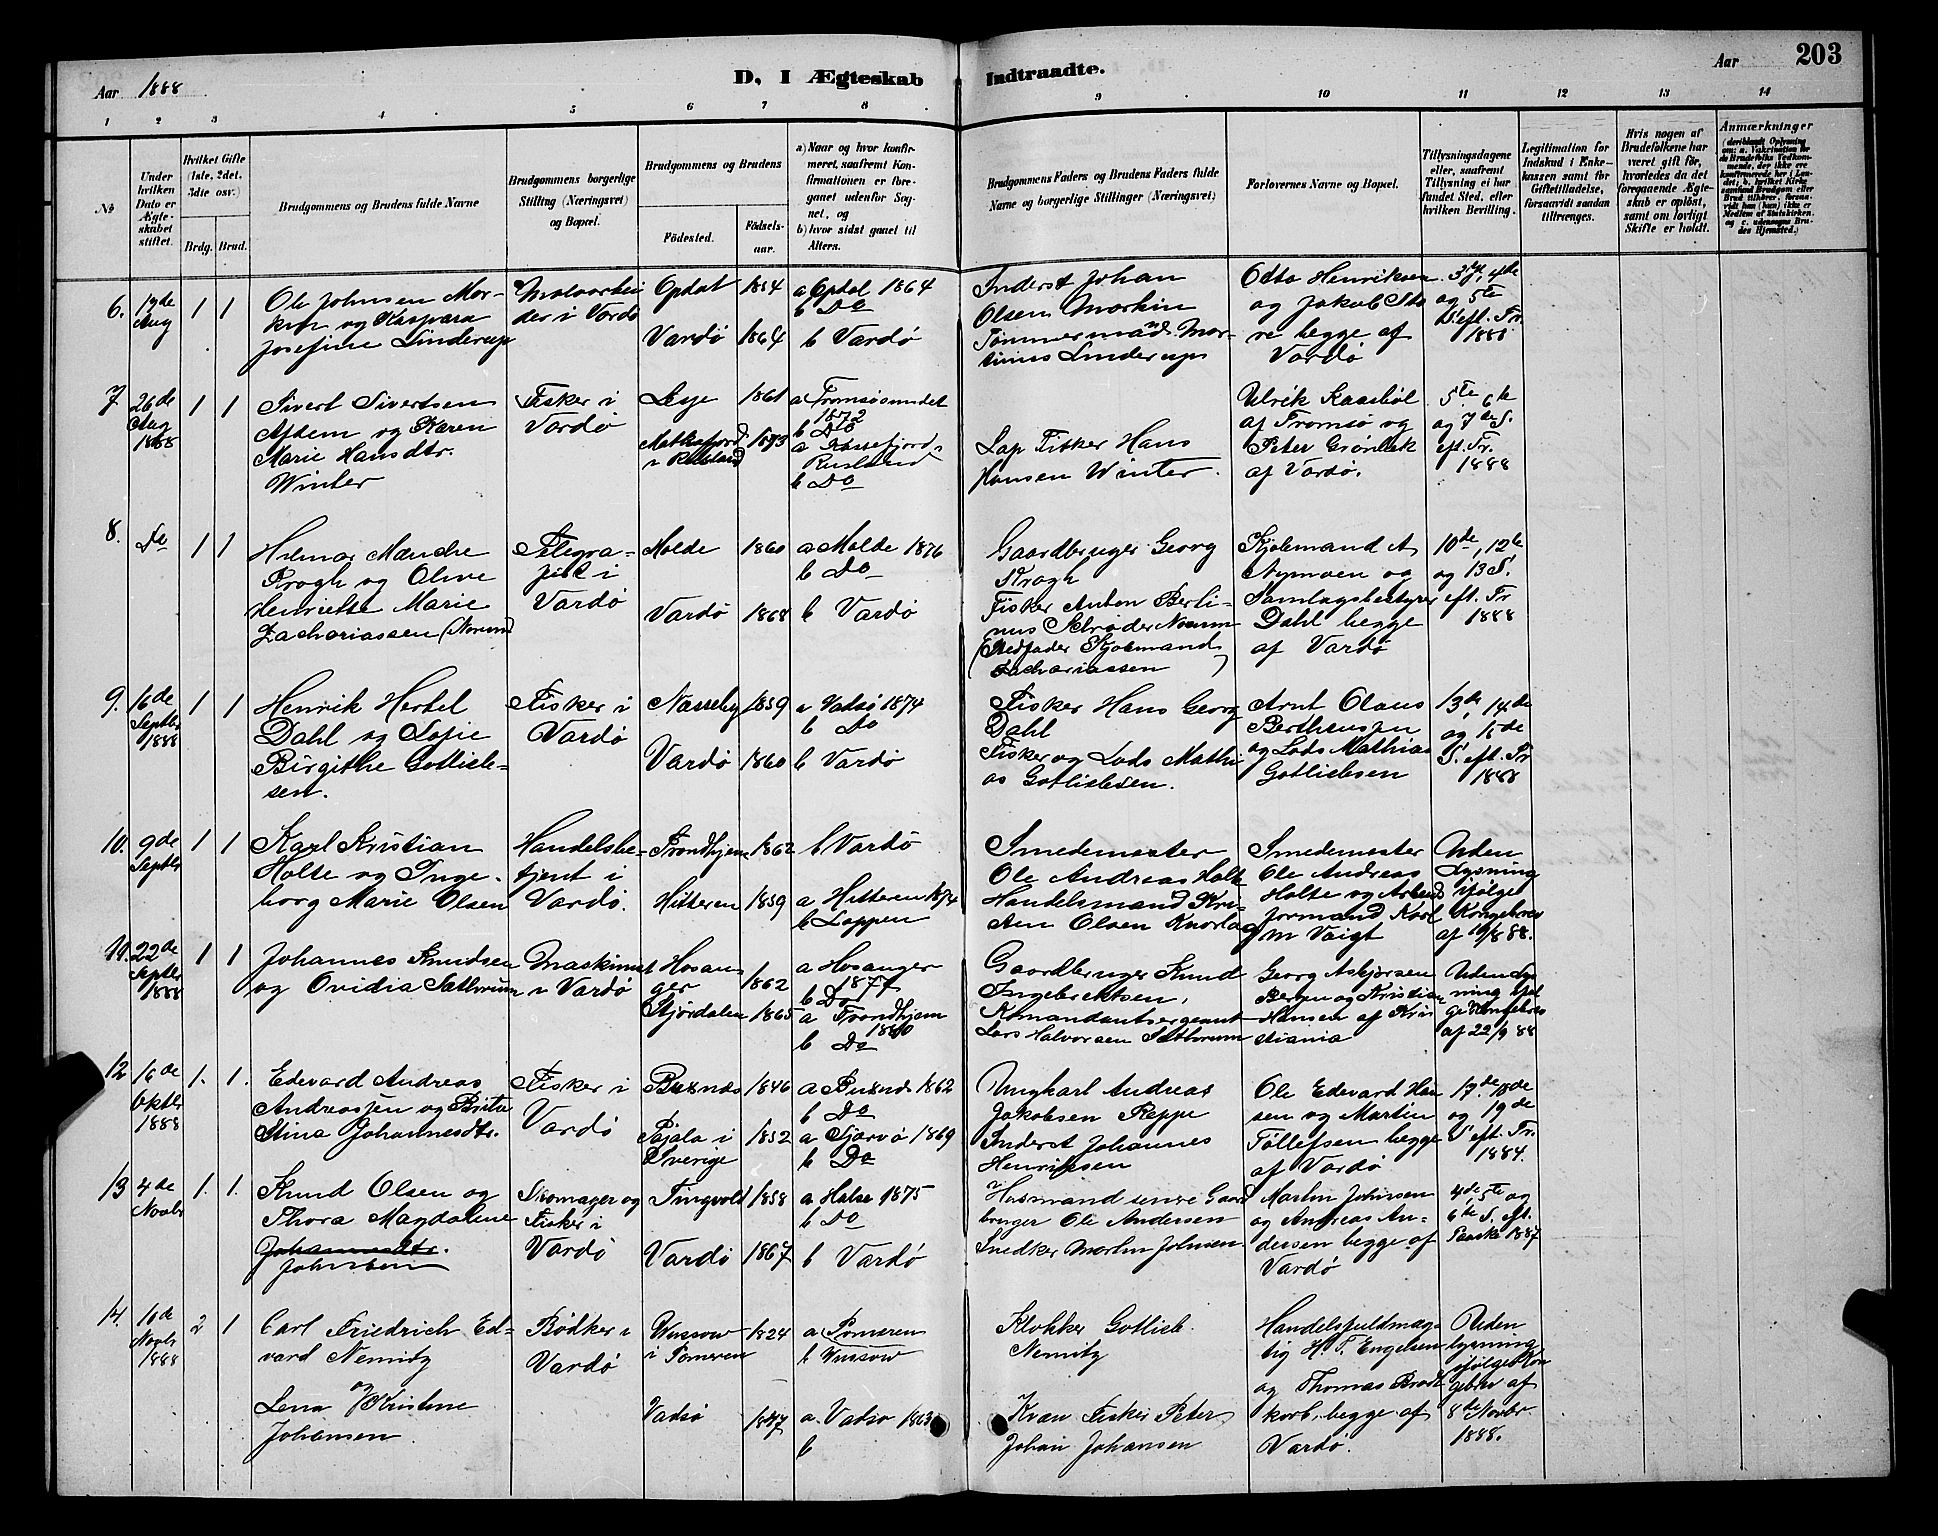 Aar 1888
D, I Ægteskab
Indtraadte.
Aar
203
1 2 3 4 5 6 7 8 9 10 11 12 13 14
No
Under hvilken Dato er Ægteskabet stiftet.
Hvilket Gifte (1ste, 2det, 3die osv.)
Brdg. Brud.
Brudgommens og Brudens fulde Navne
Brudgommens borgerlige Stilling (Næringsvei) og Bopæl.
Brudgommens og Brudens
Födested.
Födselsaar.
a) Naar og hvor konfirmeret, saafremt Konfirmationen er foregaaet udenfor Sognet, og
b) hvor sidst gaaet til Alters.
Brudgommens Faders og Brudens Faders fulde Navne og borgerlige Stillinger (Næringsvei)
Forlovernes Navne og Bopæl.
Tillysningsdagene eller, saafremt Tillysning ei har fundet Sted, efter hvilken Bevilling.
Legitimation for Indskud i Enkekassen samt for Giftetilladelse, forsaavidt saadan tiltrænges.
Hvis nogen af Brudefolkene har været gift för, hvorledes da det foregaaende Ægteskab er oplöst, samt om lovligt Skifte er holdt.
Anmærkninger
6. 19de Aug
1 1
Ole Johnsen Mor-
kin og Kaspara
Josefine Linderup
Malerarbei
der i Vardø
Opdal 1854
Vardø 1864
a Opdal 1864
b Do
b Vardø
Inderst Johan
Olsen Morkin
Tømmermand Mar-
tinus Linderup
Otto Henriksen
og Jakob Sto
re begge af
Vardø
3die, 4de
og 5te
S. eft. Tr.
1888
7 26de
Aug
1888
1 1
Sivert Sivertsen
og Karen
Marie Hansdtr.
Winter
Fisker i
Vardø
Lesje 1861
i Rusland 1873
a Tromsøsundet
1872
b Do
a
Rusland
b Do
Lap Fisker Hans
Hansen Winter.
Ulrik Kaasbøl
af Tromsø og
Peter Grønbek
af Vardø.
5te 6te
og 7de S.
eft. Tr.
1888
8. Do
1 1
Hilmar Mencke
Krogh og Oline
Henriette Marie
Zachariassen (Norum)
Telegra-
fist i
Vardø
Molde 1860
Vardø 1868
a Molde 1876
b Do
b Vardø
Gaardbruger Georg
Krogh
Fisker Anton Berli-
nus Schrøder Norum
(Stedfader Skjolemand
Zachariassen)
Skjolemand A
Nymoen og
Samlagsbestyrer
Dahl begge
af Vardø
10de, 12te
og 13 S.
eft. Tr
1888
9. 16de
Septbr
1888
1 1
Henrik Hertel
Dahl og Sofie
Birgithe Gotlieb-
sen.
Fisker i
Vardø
Næsseby 1859
Vardø 1860
a Vadsø 1874
b Do
b Vardø
Fisker Hans Georg
Dahl
Fisker og Lods Mathi
as Gotliebsen.
Arnt Olaus
Berthensen
og Lods Mathias
Gotliebsen
13de, 14de
og 15de
S. eft. Tr
1888
10. 9de
Septbr
1 1
Karl Kristian
Holte og Inge-
borg Marie Olsen
Handelsbe-
tjent i
Vardø.
Trondhjem 1862
Hitteren 1859
b Vardø
a Hitteren 1874
b Loppen
Smedemester
Ole Andreas Holte
Handelsmand Kri-
sten Olsen
Smedemester
Ole Andreas
Holte og Arbeids
formand Karl
M Voigt
Uden
Lysning
ifølge
Kongebrev
af 10/8 88.
11. 22de
Septbr
1888
1 1
Johannes Knudsen
og Ovidia Sætherum
Maskinist
i Vardø
Hosan-
ger 1862
Stjørdalen 1865
a Hosanger
1877
b Do
a Trondhjem
1880
b Do
Gaardbruger Knud
Ingebrektsen,
Komandantsergeant
Lars Halvorsen Sætherum
Georg Asbjørsen
Bergen og Kristian
Hansen af Kris
tiania
Uden Lys
ning iføl
ge Kongebrev
af 22/9 88
12 16de
Oktbr
1888
1. 1.
Edevard Andreas
Andreassen og Brita
Stina Johannesdtr.
Fisker i
Vardø
Buxnæs 1846
Pajala i
Sverige 1852
a Buxnæs 1862
b Do
a Skjervø 1869
b Do
Ungkarl Andreas
Jakobsen Reppe
Inderst Johannes
Henriksen
Ole Edevard Han
sen og Martin
Tollefsen begge
af Vardø
17de 18de
og 19de
S eft. Tr.
1884.
13 4de
Novbr
1. 1.
Knud Olsen og
Thora Magdalene
Johannesdtr.
Johnsen
Skomager og
Fisker i
Vardø
Tingvold 1858
Vardø 1867
a Halse 1875
b Do
b Vardø
Husmand senere Gaard
bruger Ole Andersen
Snedker Martin Johnsen
Martin Johnsen
og Andreas An-
dersen begge af
Vardø
4de, 5te og
6te S. eft.
Paaske 1887
14. 10de
Novbr
1888
2 1
Carl Friedrich Ed-
vard Nemitz
og
Lena Kristine
Johansen
Bødker i
Vardø
Wussow
i Pomeren 1824
Vadsø 1847
a Pomeren
b Wussow
a. Vadsø 1863
b
Klokker Gotlieb
Nemitz
Kvæn Fisker Peter
Johan Johansen
Handelsfuldmæg-
tig H. P. Engelsen
og Thomas Brodt-
korb, begge af
Vardø.
Uden
lysning
ifølge Kon
gebrev af
8de Novbr
1888.